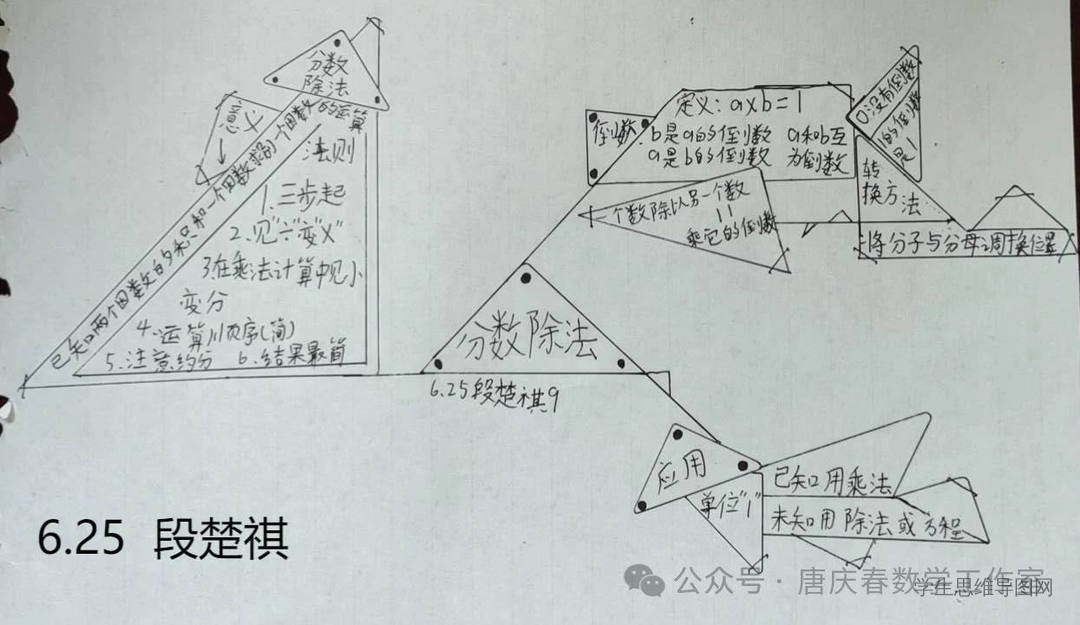 分数
除法
意义
已知两个因数的积和一个因数求另一个因数的运算
法则
1.三步起
2.见"÷"变"×"
3在乘法计算中见小
变分
4.运算顺序(简)
5.注意约分 6.结果最简
分数除法
6.25段楚祺9
倒数:
定义:a×b=1
b是a的倒数 a和b互
a是b的倒数 为倒数
0没有倒数
1的倒数
是1
转
换方法
=将分子与分母调换位置
一个数除以另一个数
=
乘它的倒数
应用
单位"1"
已知用乘法
未知用除法或方程
6.25 段楚祺
公众号·唐庆春数学工作室
学生思维导图网